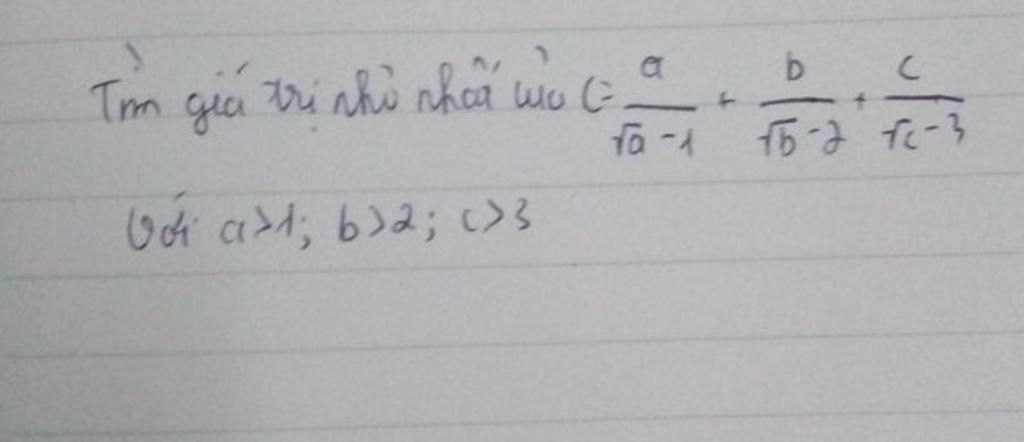 Tìm giá trị nhỏ nhất của C = a/(√a - 1) + b/(√b - 2) + c/(√c - 3)
Với a>1; b>2; c>3